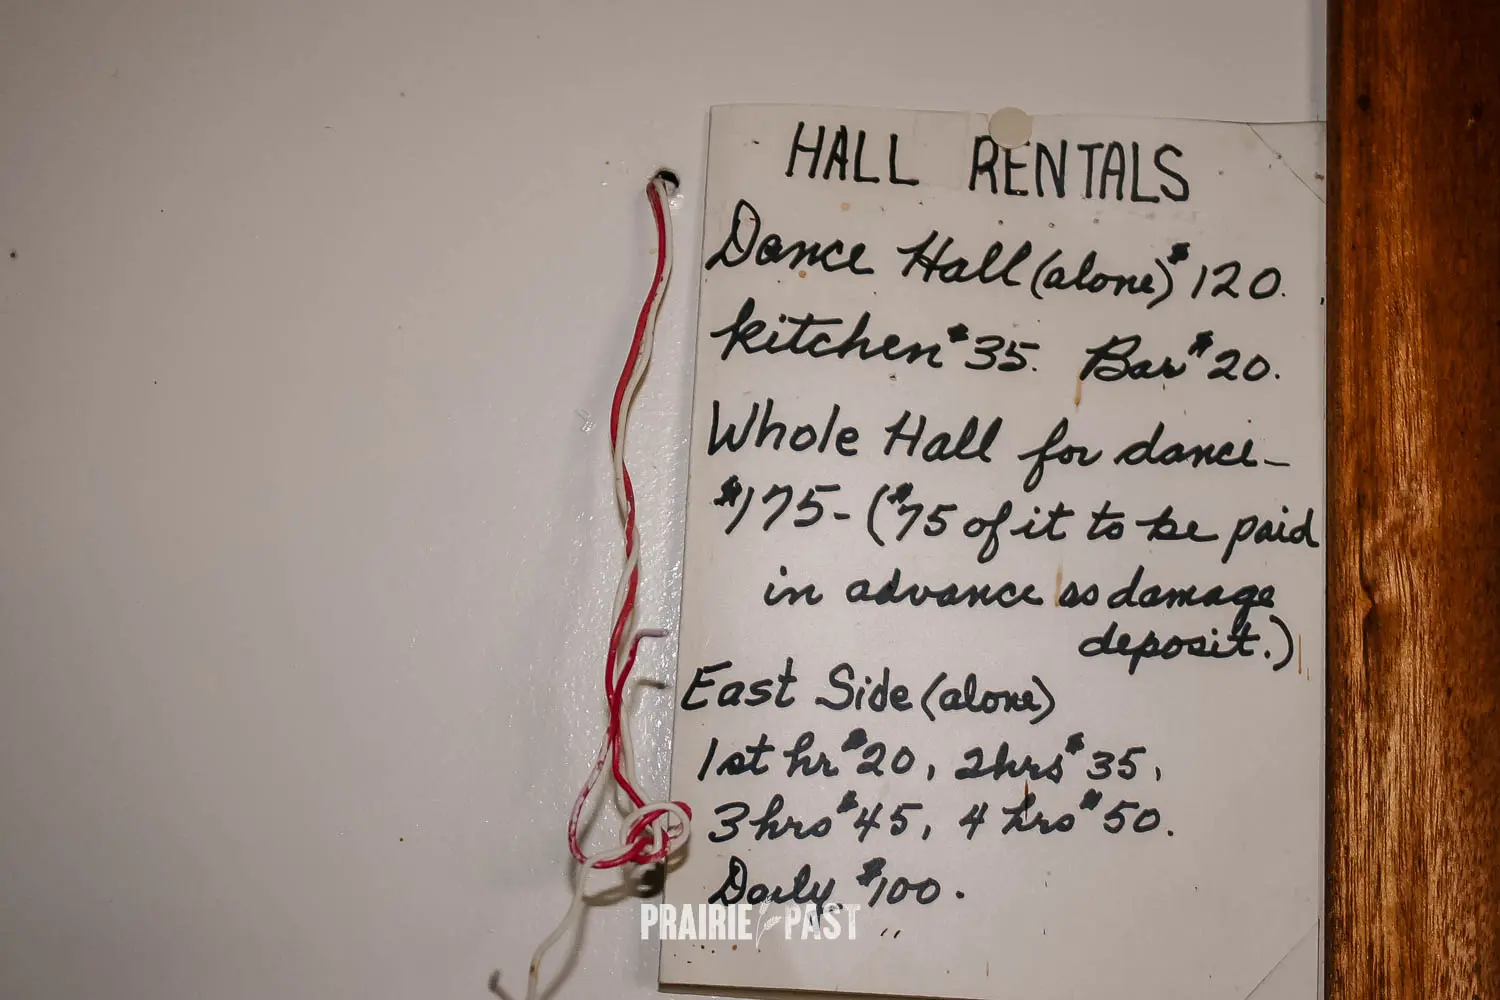 HALL RENTALS
Dance Hall (alone) $120.
kitchen $35. Bar $20.
Whole Hall for dance-
$175- ($75 of it to be paid
in advance as damage
deposit.)
East Side (alone)
1st hr $20, 2hrs $35,
3hrs $45, 4 hrs $50.
Daily $100.
PRAIRIE PAST